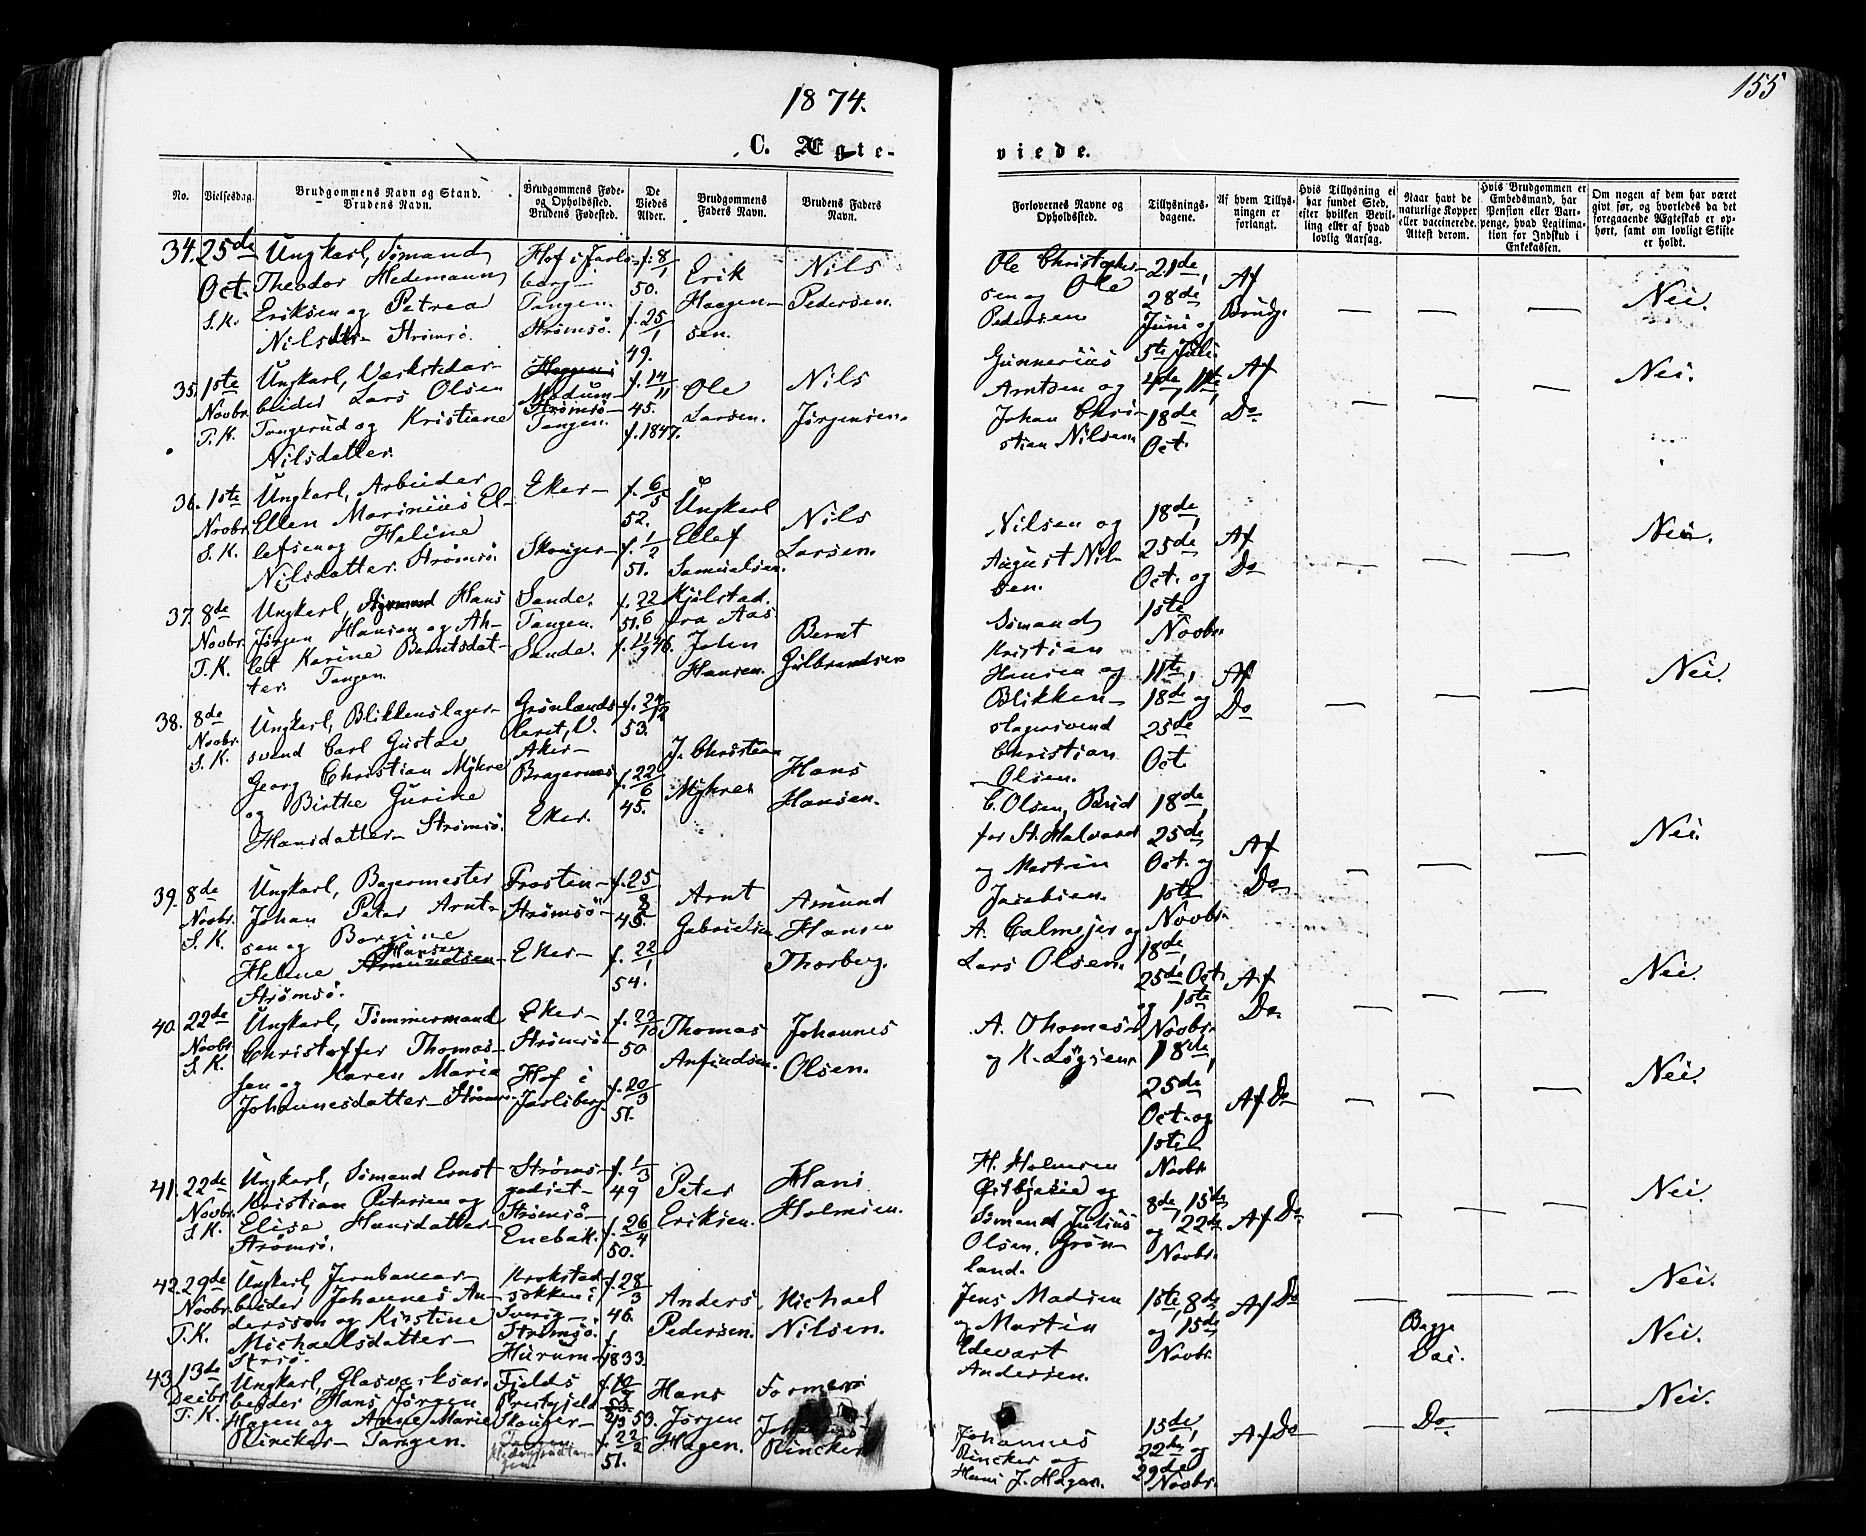 1874.
155
C. Ægte-
viede.
No.
Vielsesdag.
Brudgommens Navn og Stand.
Brudens Navn.
Brudgommens Føde-
og Opholdssted.
Brudens Fødested.
De
Viedes
Alder.
Brudgommens
Faders Navn.
Brudens Faders
Navn.
Forlovernes Navne og
Opholdssted.
Tillysnings-
dagene.
Af hvem Tillys-
ningen er
forlangt.
Hvis Tillysning ei
har fundet Sted,
efter hvilken Bevil-
ling eller af hvad
lovlig Aarsag.
Naar havt de
naturlige Kopper
eller vaccinerede.
Attest derom.
Hvis Brudgommen er
Embedsmand, har
Pension eller Vart-
penge, hvad Legitima-
tion for Indskud i
Enkekassen.
Om nogen af dem har været
gift før, og hvorledes da det
foregaaende Ægteskab er op-
hørt, samt om lovligt Skifte
er holdt.
34. 25de
Oct.
S. K.
Ungkarl, Sømand
Theodor Hedemann
Eriksen og Petrea
Nilsdtr. Strømsø.
Hof i Jarls-
berg-
Tangen.
Strømsø.
f. 8/1
50.
f. 25/1
49.
Erik
Haagen-
sen.
Nils
Pedersen.
Ole Christopher-
sen og Ole
Pedersen
21de,
28de
Juni og
5te Juli
Af
Brudg.
— — — Nei.
35. 1ste
Novbr.
T. K.
Ungkarl, Værkstedar-
beider Lars Olsen
Tangerud og Kristiane
Nilsdatter.
Modum-
Strømsø-
Tangen.
f. 14/11
45.
f. 1847.
Ole
Larsen.
Nils
Jørgensen.
Gunnerius
Arntsen og
Johan Chri-
stian Nilsen
4de, 11te,
18de
Oct.
Af
Do
— — — Nei.
36. 1ste
Novbr.
S. K.
Ungkarl, Arbeider
Ellen Marinius El-
lefsen og Heline
Nilsdatter. Strømsø.
Eker-
Skouger-
f. 6/5
52.
f. 1/2
51.
Ungkarl
Ellef
Samuelsen.
Nils
Larsen.
Nilsen og
August Nil-
sen.
18de,
25de
Oct. og
1ste
Novbr.
Af
Do
— — — Nei.
37. 8de
Novbr.
T. K.
Ungkarl, Hans
Jørgen Hansen og Ah-
let Karine Berntsdat-
ter. Tangen.
Sande.
Tangen.
Sande.
f. 22/6
51.
Kjølstad.
fra Aas
John
Hansen.
Bernt
Gulbrandsen
Sømand
Kristian
Hansen og
Blikken-
slagersvend
Christian
Olsen.
11te,
18de og
25de
Oct.
Af
Do
— — — Nei.
38. 8de
Novbr.
S. K.
Ungkarl, Blikkenslager-
svend Carl Gustav
Georg Christian Myhre
og Birthe Gurine
Hansdatter- Strømsø.
Grønlands-
leret, V.
Aker-
Bragernes
Eker.
f. 24/12
53.
f. 22/6
45.
J. Christian
Myhre
Hans
Hansen.
C. Olsen,
for St. Halvard
og Martin
Jacobsen.
18de,
25de
Oct. og
1ste
Novbr.
Af
Do
— — — Nei.
39. 8de
Novbr.
S. K.
Ungkarl, Bagermester
Johan Peter Arnt-
sen og Borgine
Hansen
Helene Amundsen-
Strømsø.
Frosten-
Strømsø-
Eker-
f. 25/8
45.
f. 22/1
54.
Arnt
Gabrielsen
Amund
Hansen
Thorberg.
A. Calmejer og
Lars Olsen.
18de,
25de Oct.
og 1ste
Novbr.
Af
Do
— — — Nei.
40. 22de
Novbr.
S. K.
Ungkarl, Tømmermand
Christoffer Thomas-
sen og Karen Maria
Johannesdatter- Strømsø-
Eker-
Strømsø-
Hof i
Jarlsberg.
f. 22/10
50
f. 20/3
51.
Thomas
Anfindsen.
Johannes
Olsen.
18de,
25de
Oct. og
1ste
Novbr.
Af Do
— — — Nei.
41. 22de
Novbr.
S. K.
Ungkarl, Sømand Ernst
Kristian Petersen og
Elise Hansdatter-
Strømsø.
Strøms-
godset-
Strømsø-
Enebak.
f. 1/3
49
f. 26/4
50.
Peter
Eriksen.
Hans
Holmsen.
H. Holmsen
og
Sømand Julius
Olsen, Grøn-
land.
8de, 15de
og 22de
Novbr.
Af Do
— — — Nei.
42. 29de
Novbr.
T. K.
Ungkarl, Jernbanear-
beider Johannes An-
dersson og Kirstine
Michaelsdatter-
Krokstad
sokken i
Sverig-
Strømsø.
Hurum-
f. 28/3
46.
f.
1833.
Anders
Pedersen.
Michael
Nilsen.
Jens Madsen
og Martin
Edevart
Andersen.
1ste, 8de
og 15de
Novbr.
Af Do
— Begge
Vac. — Nei.
Nei.
43. 13de
Decbr.
T. K.
Ungkarl, Glasværksar-
beider Hans Jørgen
Hagen og Anne Marie
Rincker- Tangen.
Fjelds
Prestgjeld
Skouger-
f. 22/2
51.
Hans
Jørgen
Hagen.
Rincker
Johannes
Rincker og
Hans J. Hagen.
15de,
22de og
29de
Novbr.
Af Do
— Do — Nei.